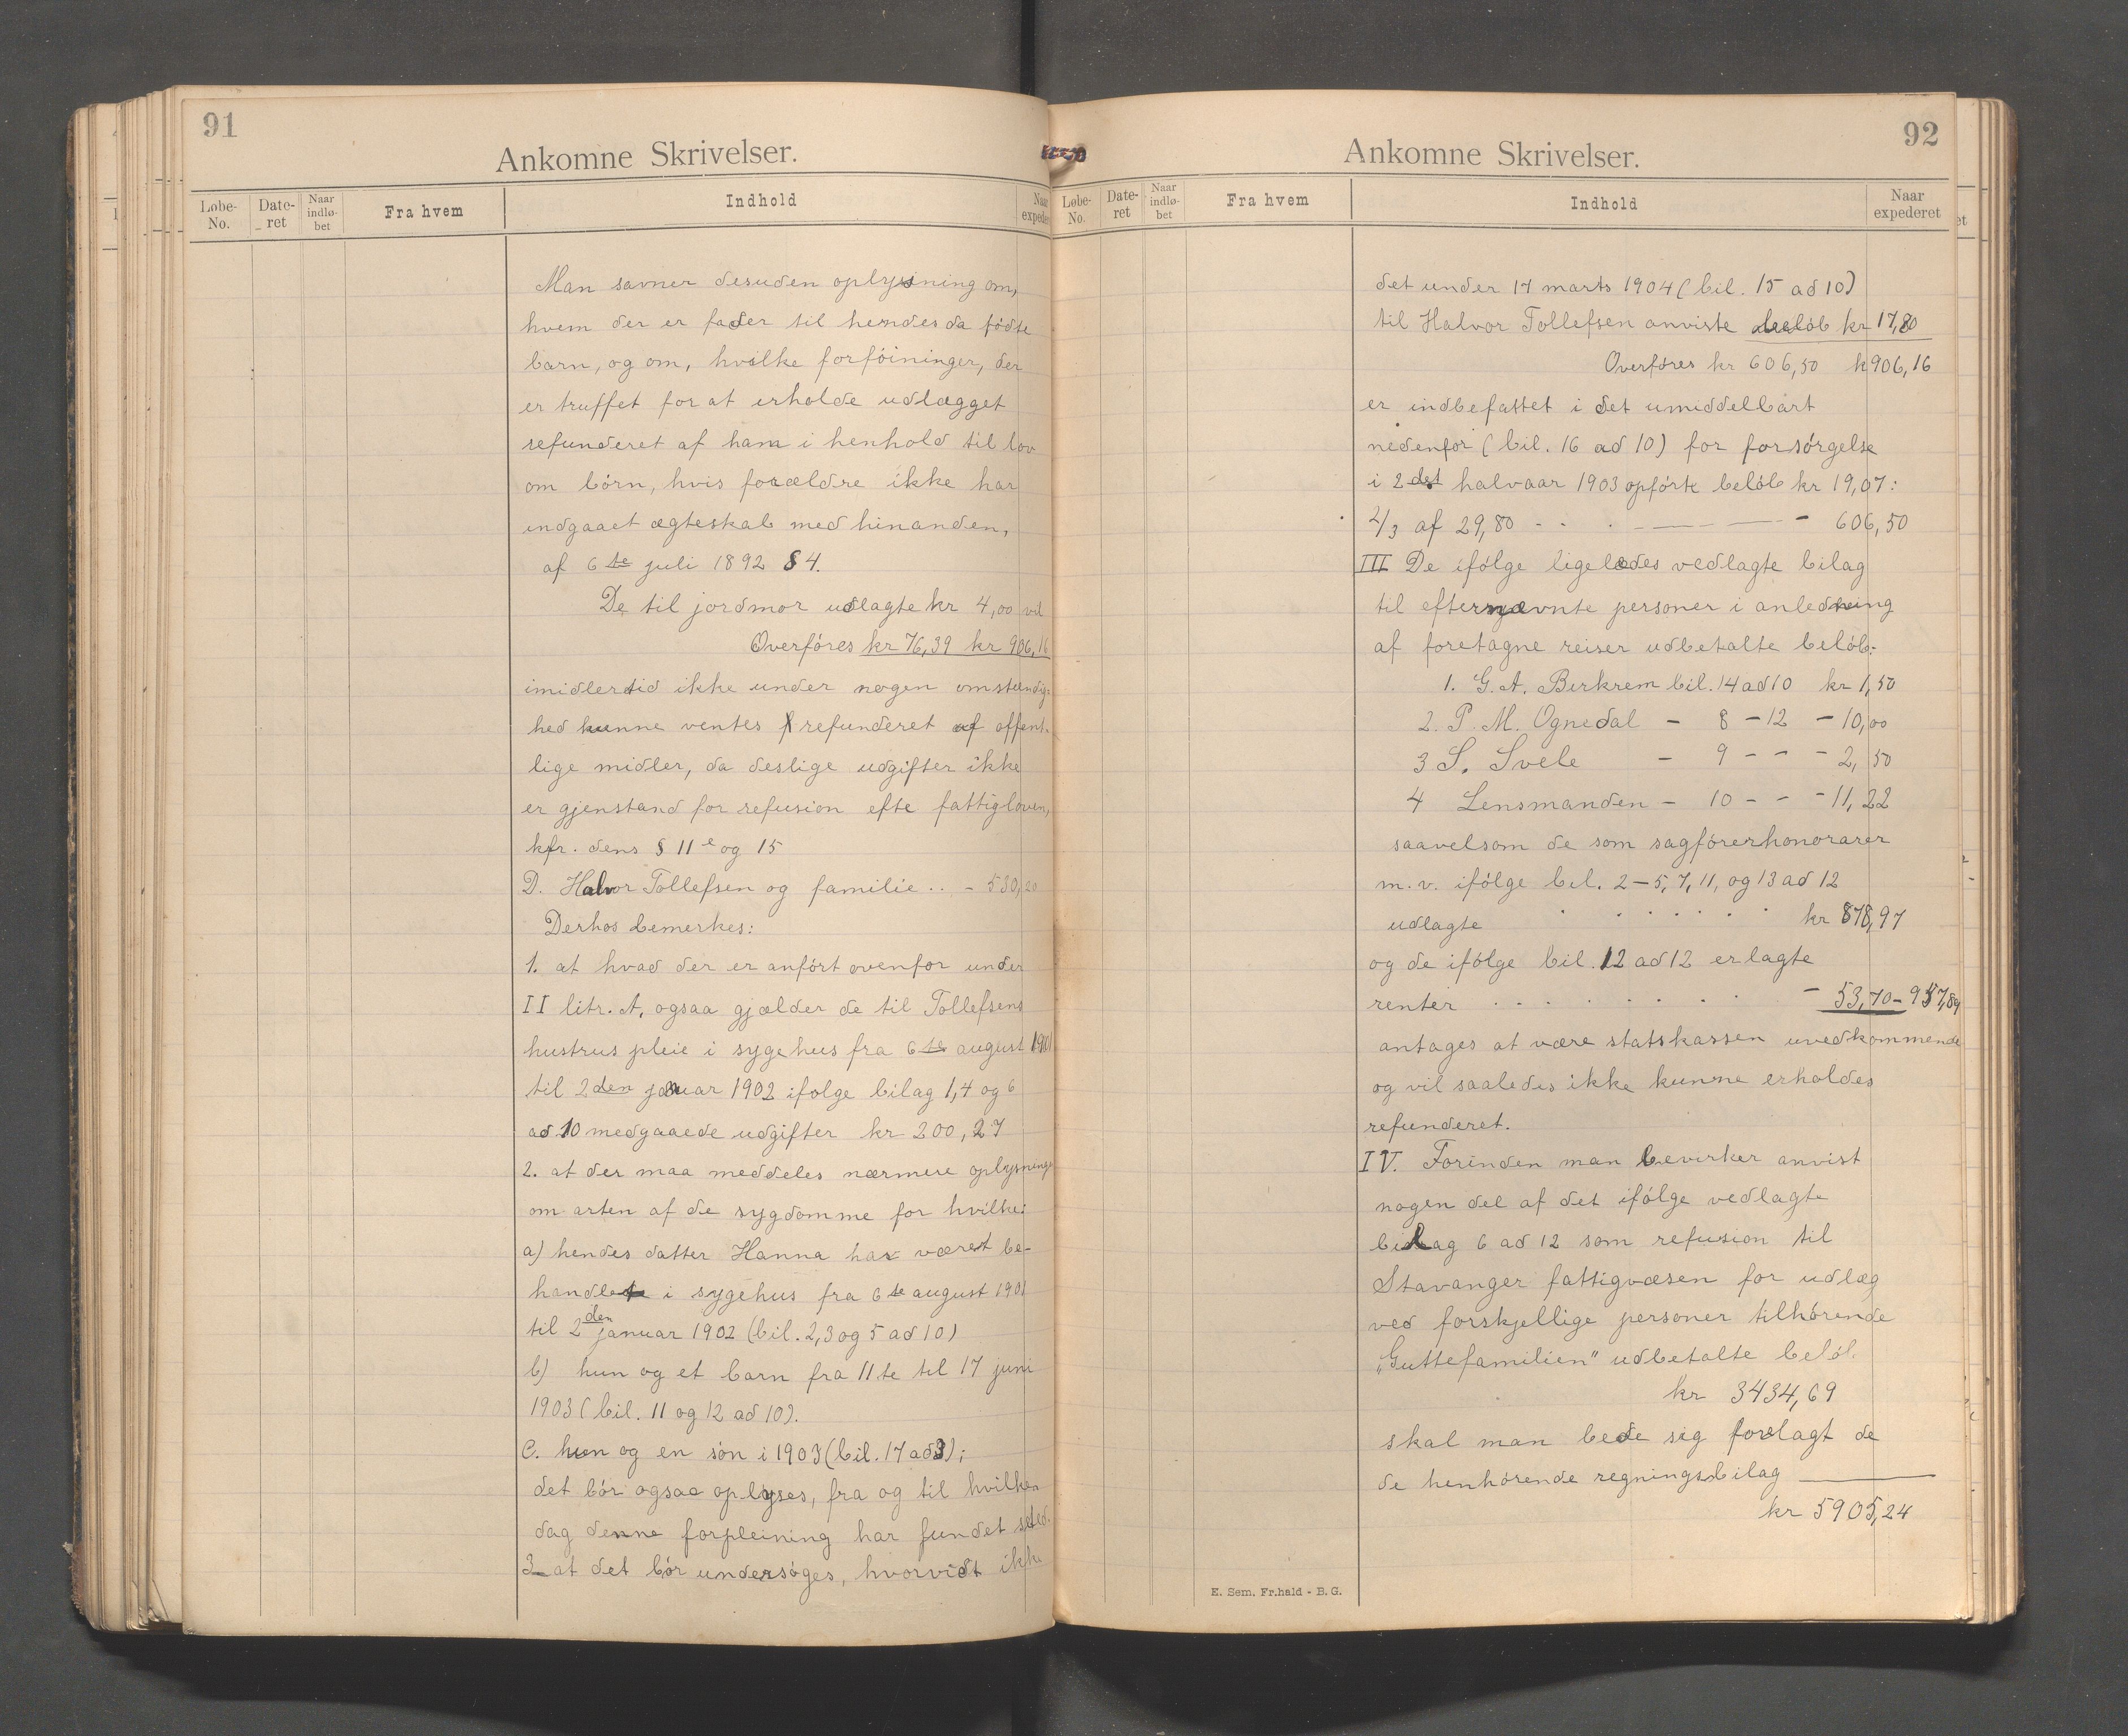 91
Ankomne Skrivelser.
Løbe-No. Date-ret Naar indlø-bet Fra hvem Indhold Naar expederet
Man savner desuden oplysning om,
hvem der er fader til hendes da fødte
barn, og om, hvilke forføininger, der
er truffet for at erholde udlægget
refunderet af ham i henhold til lov
om børn, hvis forældre ikke har
indgaaet ægteskab med hinanden,
af 6te juli 1892 § 4.
De til jordmor udlagte kr 4,00 vil
Overføres kr 76,39 kr 906,16
imidlertid ikke under nogen omstændig-
hed kunne ventes refunderet af offent-
lige midler, da deslige udgifter ikke
er gjenstand for refusion efte fattigloven,
kfr. dens § 11 e og 15
D. Halvor Tollefsen og familie .. - 530,20
Derhos bemerkes:
1. at hvad der er anført ovenfor under
II litr. A, ogsaa gjælder de til Tollefsens
hustrus pleie i sygehus fra 6te august 1901
til 2den januar 1902 ifølge bilag 1,4 og 6
ad 10 medgaaede udgifter kr 200,27
2. at der maa meddeles nærmere oplysninge
om arten af de sygdomme for hvilke:
a) hendes datter Hanna har været be-
handlet i sygehus fra 6te august 1901
til 2den januar 1902 (bil. 2,3 og 5 ad 10)
b) hun og et barn fra 11te til 17 juni
1903 (bil. 11 og 12 ad 10).
C. hun og en søn i 1903 (bil. 17 ad 3);
det bør ogsaa oplyses, fra og til hvilken
dag denne forpleining har fundet sted.
3 at det bør undersøges, hvorvidt ikke
92
Ankomne Skrivelser.
Løbe-No. Date-ret Naar indlø-bet Fra hvem Indhold Naar expederet
det under 17 marts 1904 (bil. 15 ad 10)
til Halvor Tollefsen anviste beløb kr 17,80
Overføres kr 606,50 k 906,16
er indbefattet i det umiddelbart
nedenfor (bil. 16 ad 10) for forsørgelse
i 2det halvaar 1903 opførte beløb kr 19,07:
2/3 af 29,80 - - - 606,50
III De ifølge ligeledes vedlagte bilag
til efternævnte personer i anledning
af foretagne reiser udbetalte beløb:
1. G. A. Birkrem bil. 14 ad 10 kr 1,50
2. P. M. Ognedal - 8 - 12 - 10,00
3 S. Svele - 9 - - - 2,50
4 Lensmanden - 10 - - - 11,22
saavelsom de som sagførerhonorarer
m. v. ifølge bil. 2-5, 7, 11, og 13 ad 12
udlagte . . . . . . kr 878,97
og de ifølge bil. 12 ad 12 erlagte
renter . . . . . . - 53,70 - 957,89
antages at være statskassen uvedkommende
og vil saaledes ikke kunne erholdes
refunderet.
IV. Forinden man bevirker anvist
nogen del af det ifølge vedlagte
bilag 6 ad 12 som refusion til
Stavanger fattigvæsen for udlæg
ved forskjellige personer tilhørende
„Guttefamilien" udbetalte beløb.
kr 3434,69
skal man bede sig forelagt de
de henhørende regningsbilag
kr 5905,24
E. Sem. Fr.hald - B. G.